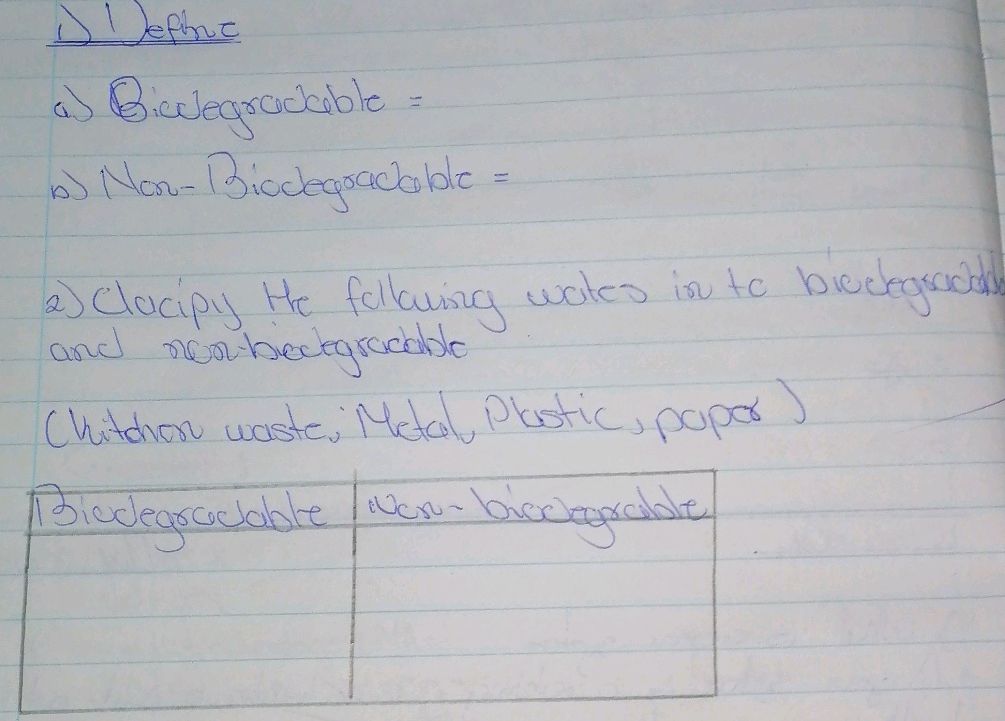 1) Define
a) Biodegradable =
b) Non-Biodegradable =
2) Clacipy the following wates in to biodegradable
and non-biodegradable
(Kitchen waste, Metal, Plastic, paper)
Biodegradable Non-biodegradable